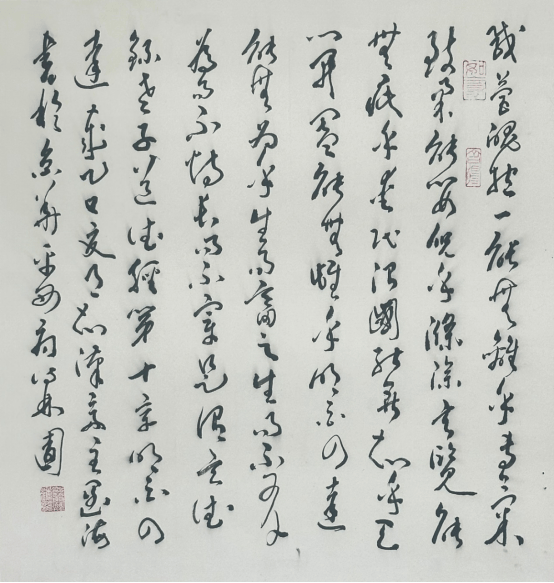 載營魄抱一能無離乎專氣
致柔能嬰兒乎滌除玄覽能
無疵乎愛民治國能無知乎天
門開闔能無雌乎明白四達
能無為乎生而畜之生而不有
為而不恃長而不宰是謂玄德
錄老子道德經第十章明白四
達 齋主墨海
書於京華